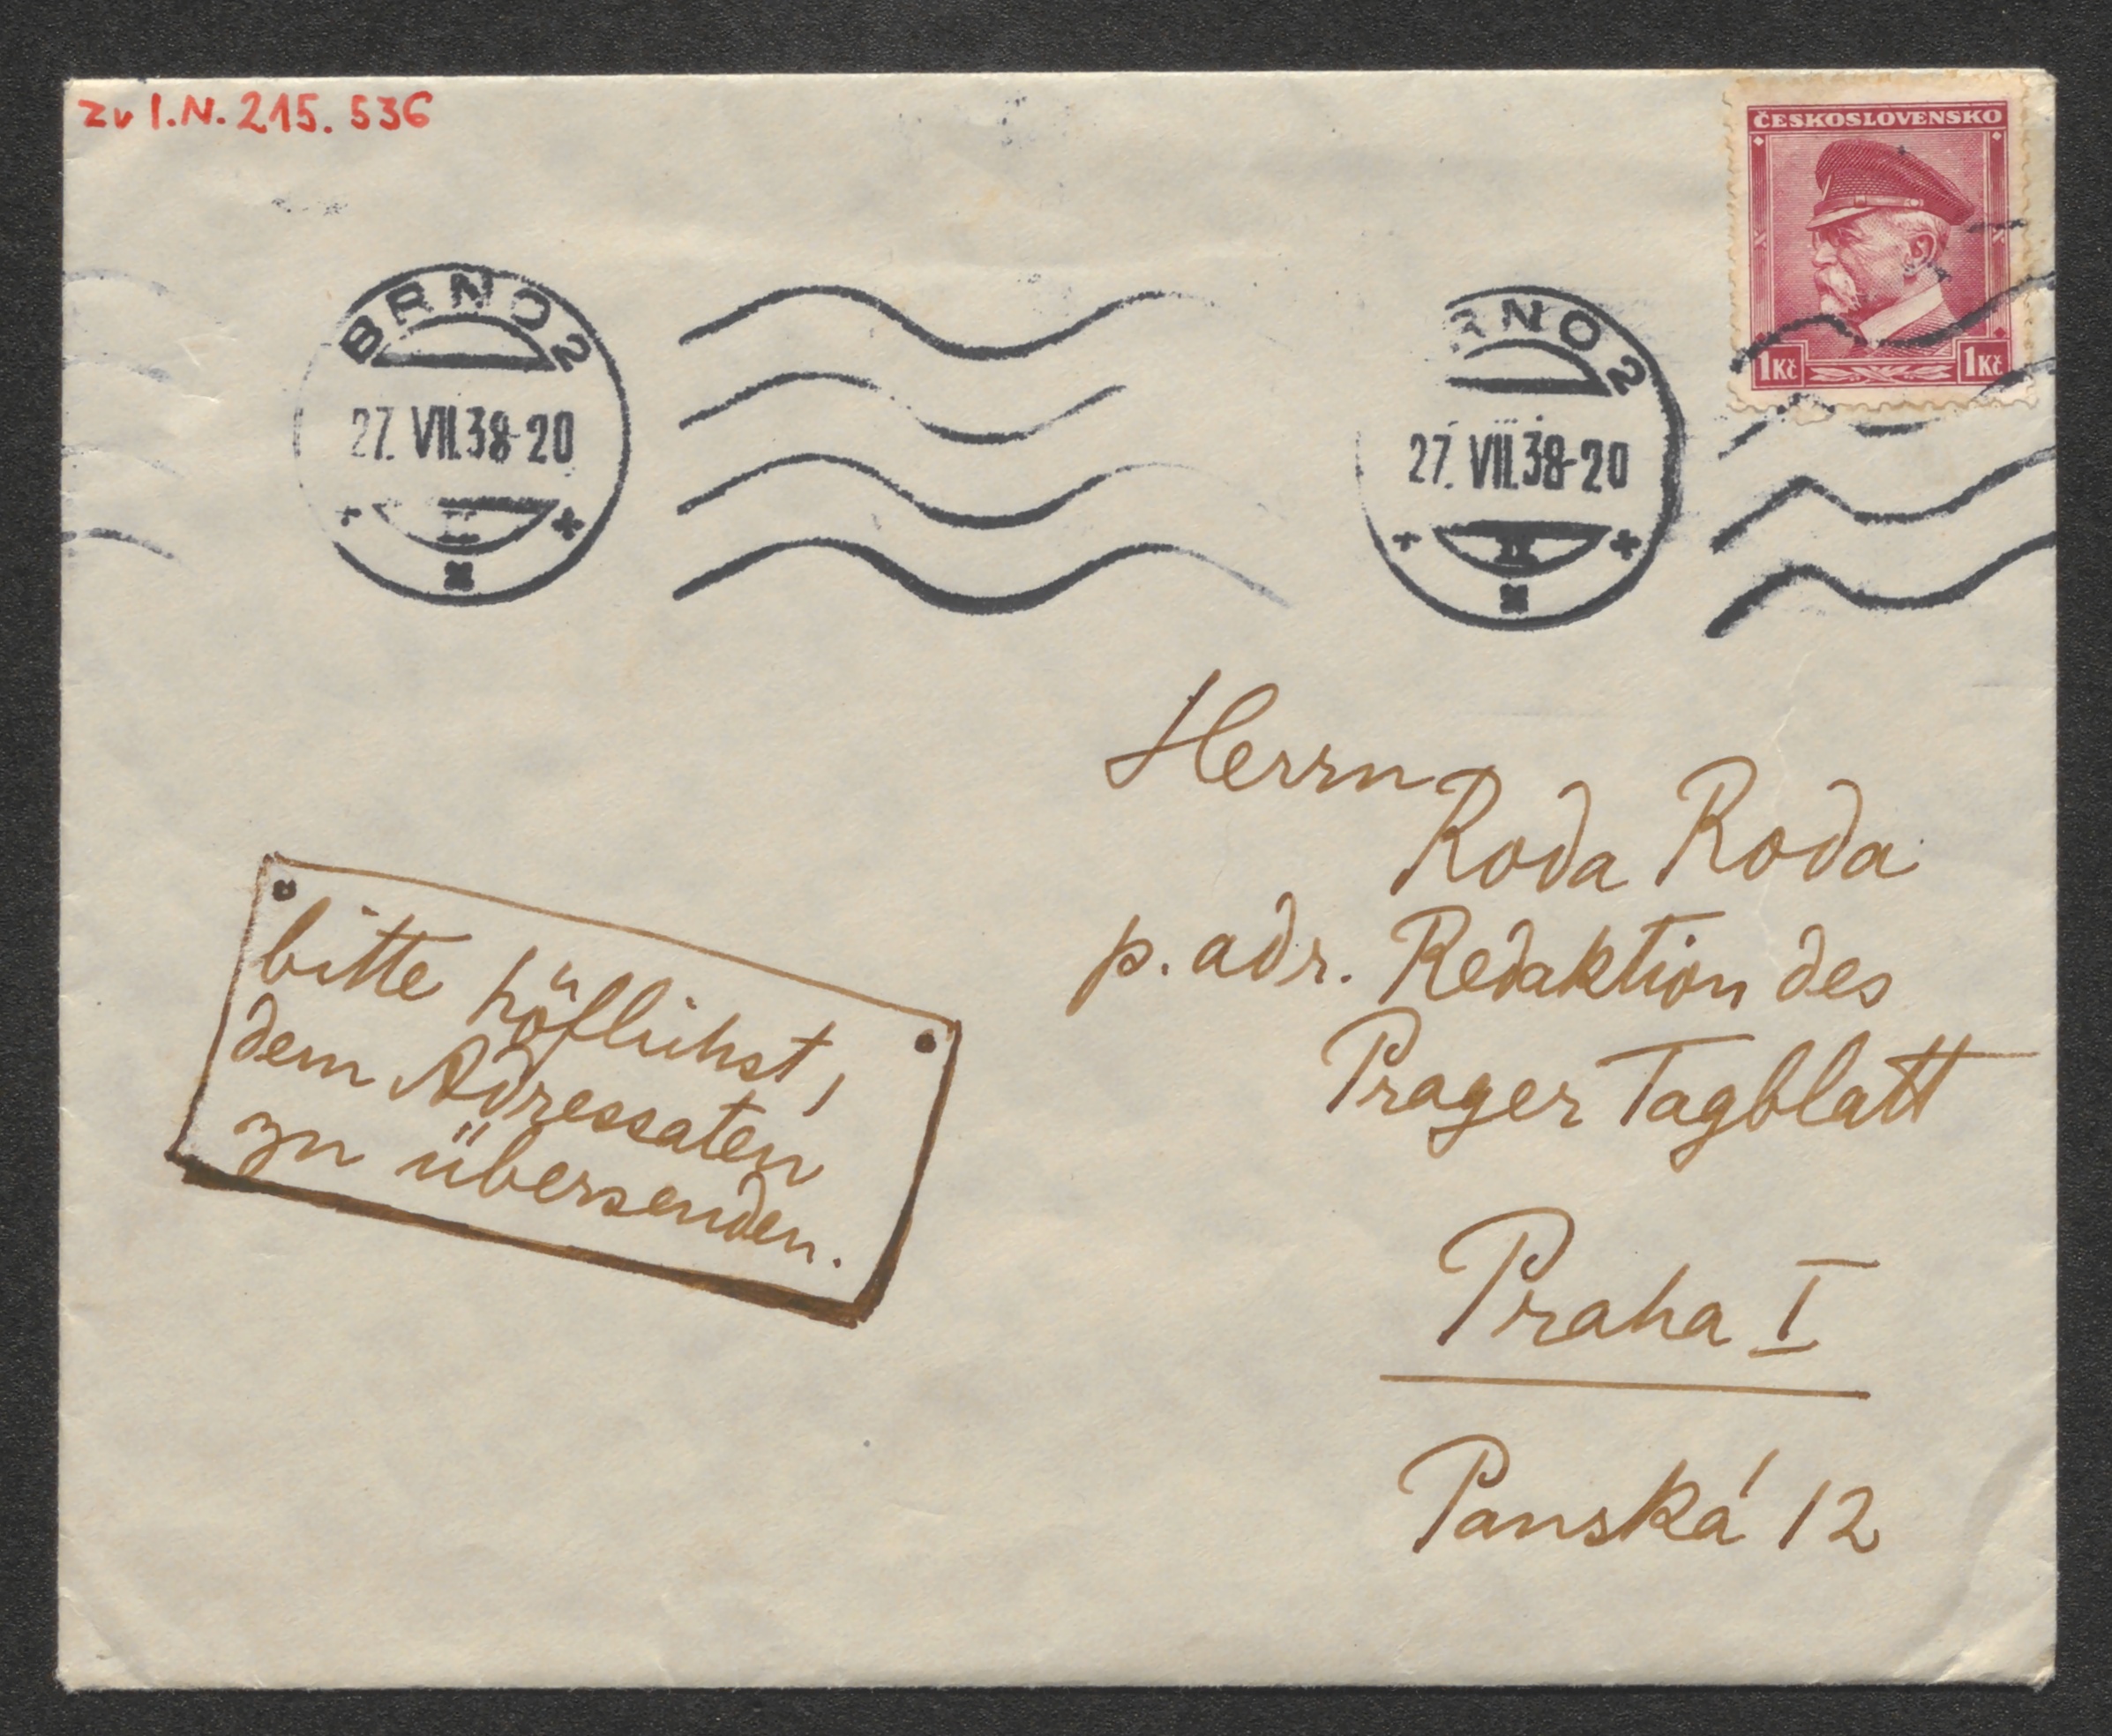 zu I.N. 215.536
ČESKOSLOVENSKO
1Kč 1Kč
BRNO 2
27. VII.38-20
RNO 2
27. VII.38-20
Herrn
Roda Roda
p. adr. Redaktion des
Prager Tagblatt
Praha I
Panská 12
bitte höflichst,
dem Adressaten
zu übersenden.